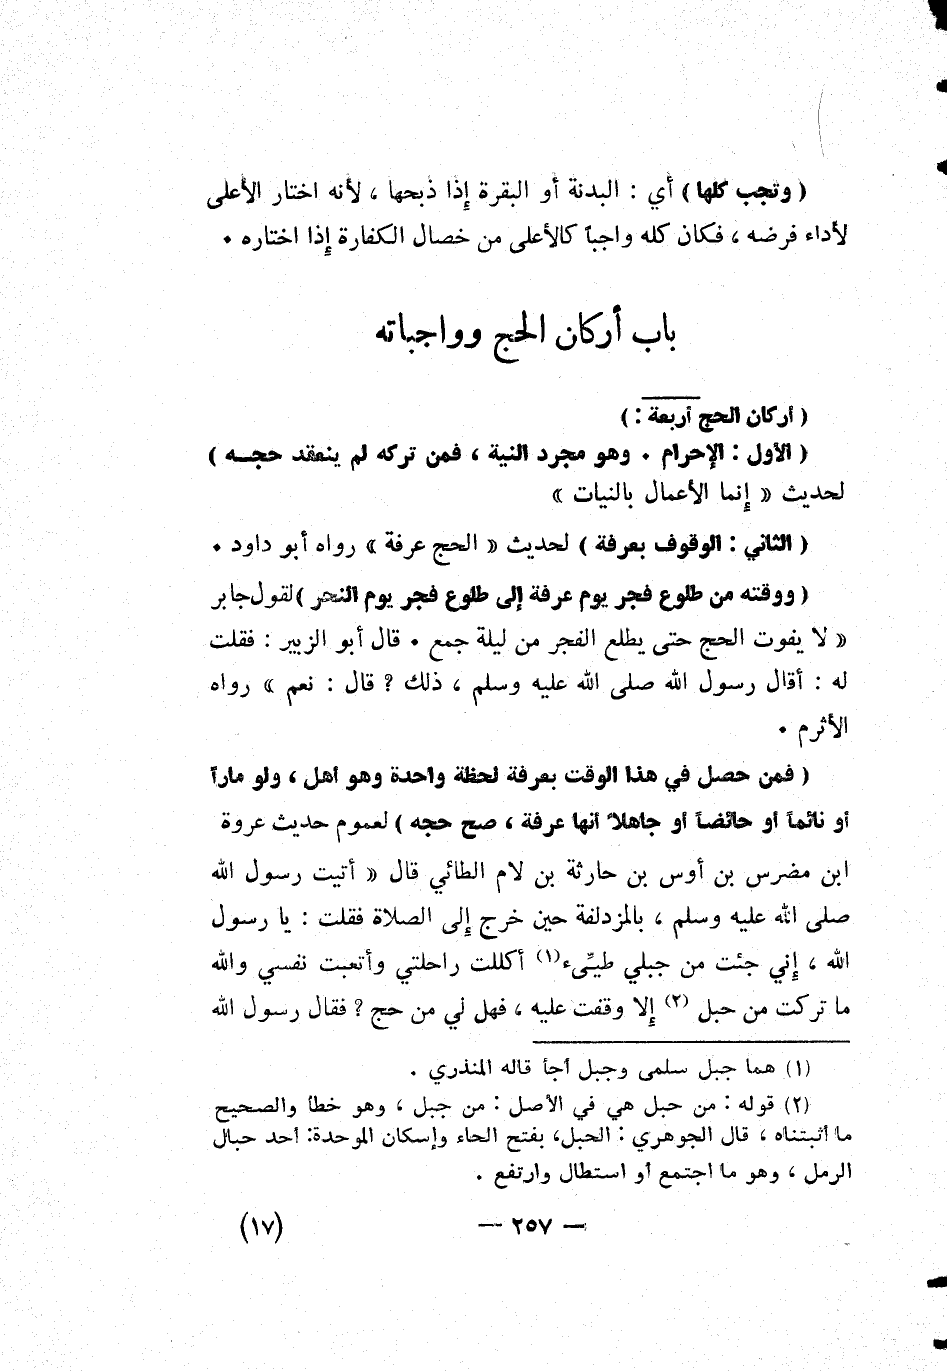 ( وتجب كلها ) أي : البدنة أو البقرة إذا ذبحها ، لأنه اختار الأعلى
لأداء فرضه ، فكان كله واجباً كالأعلى من خصال الكفارة إذا اختاره .
باب أركان الحج وواجباته
( أركان الحج أربعة : )
( الأول : الإحرام . وهو مجرد النية ، فمن تركه لم ينعقد حجـه )
لحديث « إنما الأعمال بالنيات »
( الثاني : الوقوف بعرفة ) لحديث « الحج عرفة » رواه أبو داود .
( ووقته من طلوع فجر يوم عرفة إلى طلوع فجر يوم النحر ) لقول جابر
« لا يفوت الحج حتى يطلع الفجر من ليلة جمع . قال أبو الزبير : فقلت
له : أقال رسول الله صلى الله عليه وسلم ، ذلك ؟ قال : نعم » رواه
الأثرم .
( فمن حصل في هذا الوقت بعرفة لحظة واحدة وهو أهل ، ولو ماراً
أو نائماً أو حائضاً أو جاهلاً أنها عرفة ، صح حجه ) لعموم حديث عروة
ابن مضرس بن أوس بن حارثة بن لام الطائي قال « أتيت رسول الله
صلى الله عليه وسلم ، بالمزدلفة حين خرج إلى الصلاة فقلت : يا رسول
الله ، إني جئت من جبلي طيِّىء(١) أكللت راحلتي وأتعبت نفسي والله
ما تركت من حبل (٢) إلا وقفت عليه ، فهل لي من حج ؟ فقال رسول الله
(١) هما جبل سلمى وجبل أجأ قاله المنذري .
(٢) قوله : من حبل هي في الأصل : من جبل ، وهو خطأ والصحيح
ما أثبتناه ، قال الجوهري : الحبل، بفتح الحاء وإسكان الموحدة: أحد حبال
الرمل ، وهو ما اجتمع أو استطال وارتفع .
— ٢٥٧ —
(١٧)